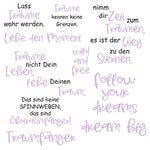 Lass
Träume
wahr werden.
Lebe den Moment
Träume
nicht Dein
Leben,
lebe Deinen
Traum.
Das sind keine
SPINNWEBEN,
das sind
Traumfänger
Träume
kennen keine
Grenzen.
wild
and
free
nimm
dir Zeit
zum
Träumen
es ist der Weg
zu den
Sternen.
follow
your
dreams
dream big